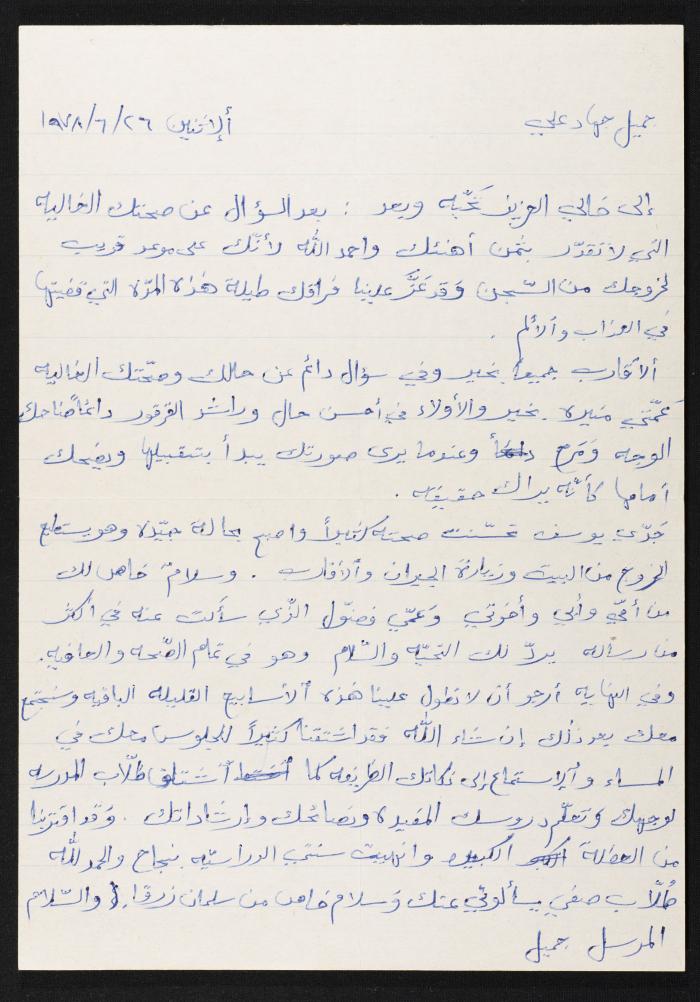 جميل جهاد علي
ألإثنين ١٩٧٨/٦/٢٦
إلى خالي العزيز تحيّه وبعد : بعد السؤال عن صحتك الغاليه
التي لا تقدّر بثمن أهنئك واحمد الله لأنّك على موعد قريب
لخروجك من السّجن وَقد عَزَّ علينا فراقك طيلة هٰذه المدّة التي قضيتها
في العذاب وألألم .
ألأقارب جميعاً بخير وفي سؤال دائم عن حالك وصحّتك الغاليه
عَمَّتي منيرة بخير والأولاد في أحسن حال وراشد الفرفور دائماً ضاحك
الوجه وَمَرِح وعندما يرى صورتك يبدأ بتقبيلها ويضحك
أمامها كأنّه يراك حقيقه .
جَدّي يوسف تحسّنت صحته كثيراً واصبح بحالة جيّدة وهو يستطيع
الخروج من البيت وزيارة الجيران وألأقارب . وسلامٌ خاص لك
من أمّي وأبي وأخوتي وَعمّي فضّول الذّي سألت عنه في اكثر
من رساله يردّ لك التحيّه والسّلام وهو في تمام الصّحه والعافيه.
وفي النهايه أرجو أن لا تطول علينا هٰذه ألأسابيع القليله الباقيه وسنجتمع
معك بعد ذلك إن شاء اللّه فقد اشتقنا كثيراً للجلوس معك في
المساء وألإستماع إلى نكاتك الظريفه كما أشتاق طلّاب المدرسه
لوجهك وَتعلّم دروسك المفيدة ونصائحك وإرشاداتك . وَقد اقتربنا
من العطلة الكبيره وانهيت سنتي الدراسيّه بنجاح والحمد لله
طُلّاب صفي يسألوني عنك وَسلام خاص من سلمان زرقا. والسّلام
المرسل جميل